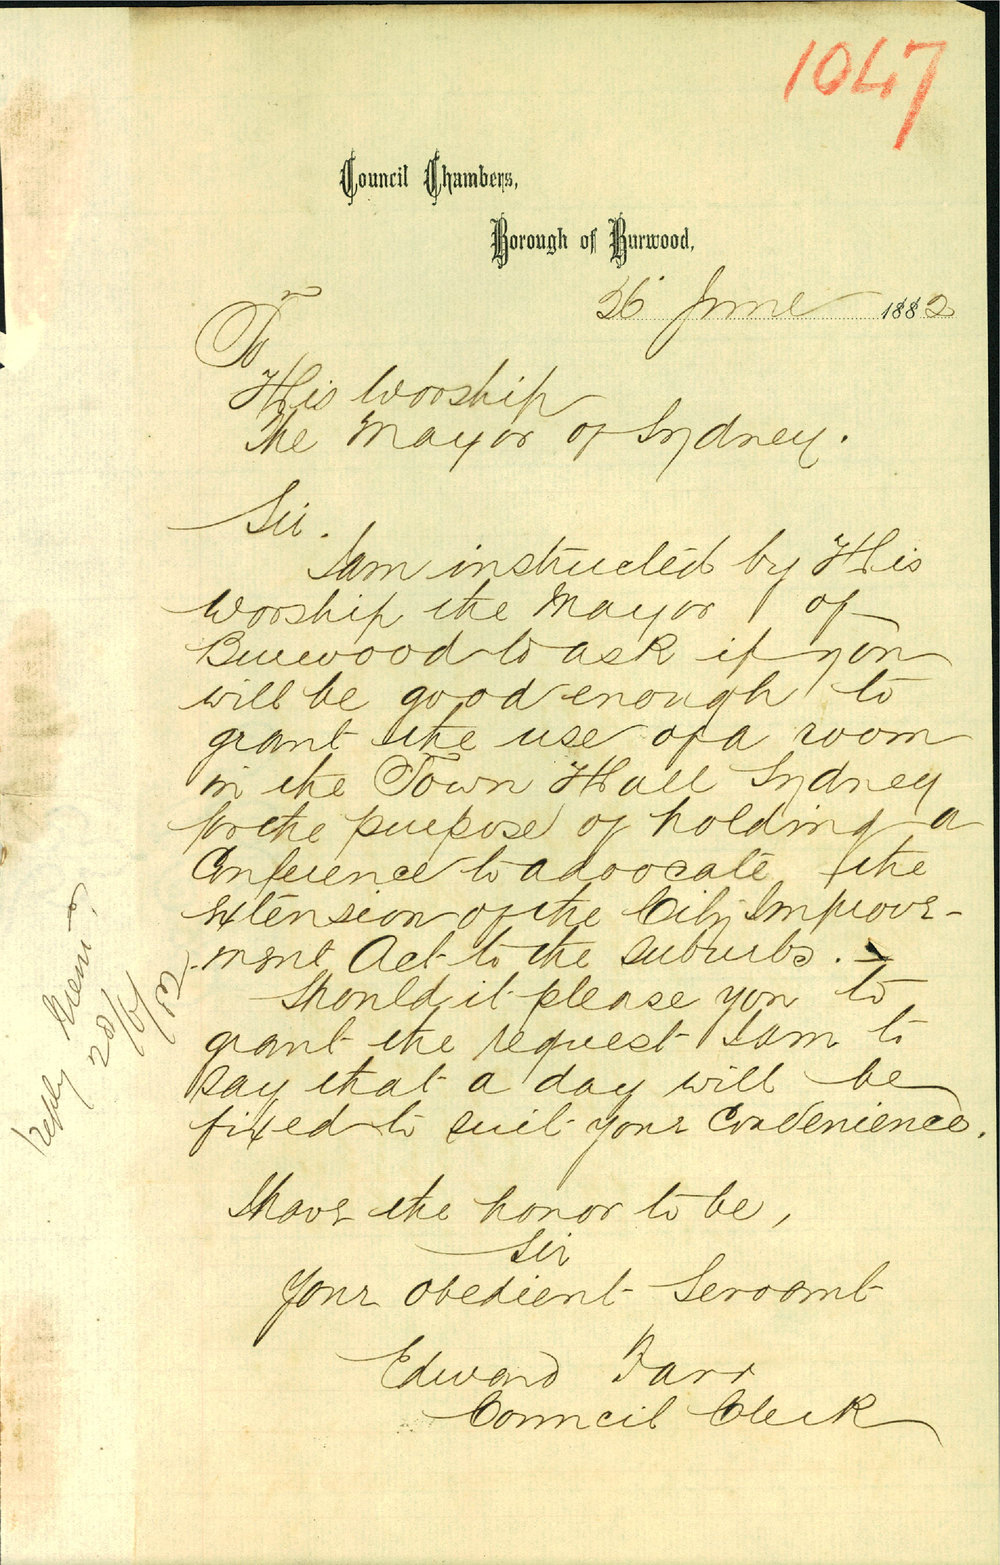 1047
Council Chambers,
Borough of Burwood,
26 June 1882
To
His Worship
The Mayor of Sydney.
Sir.
I am instructed by His
Worship the Mayor of
Burwood to ask if you
will be good enough to
grant the use of a room
in the Town Hall Sydney
for the purpose of holding a
Conference to advocate the
extension of the City Improve-
ment Act to the suburbs.
Should it please you to
grant the request I am to
say that a day will be
fixed to suit your Convenience.
I have the honor to be,
Sir
Your obedient Servant
Edward
Council Clerk
Reply
28/6/82